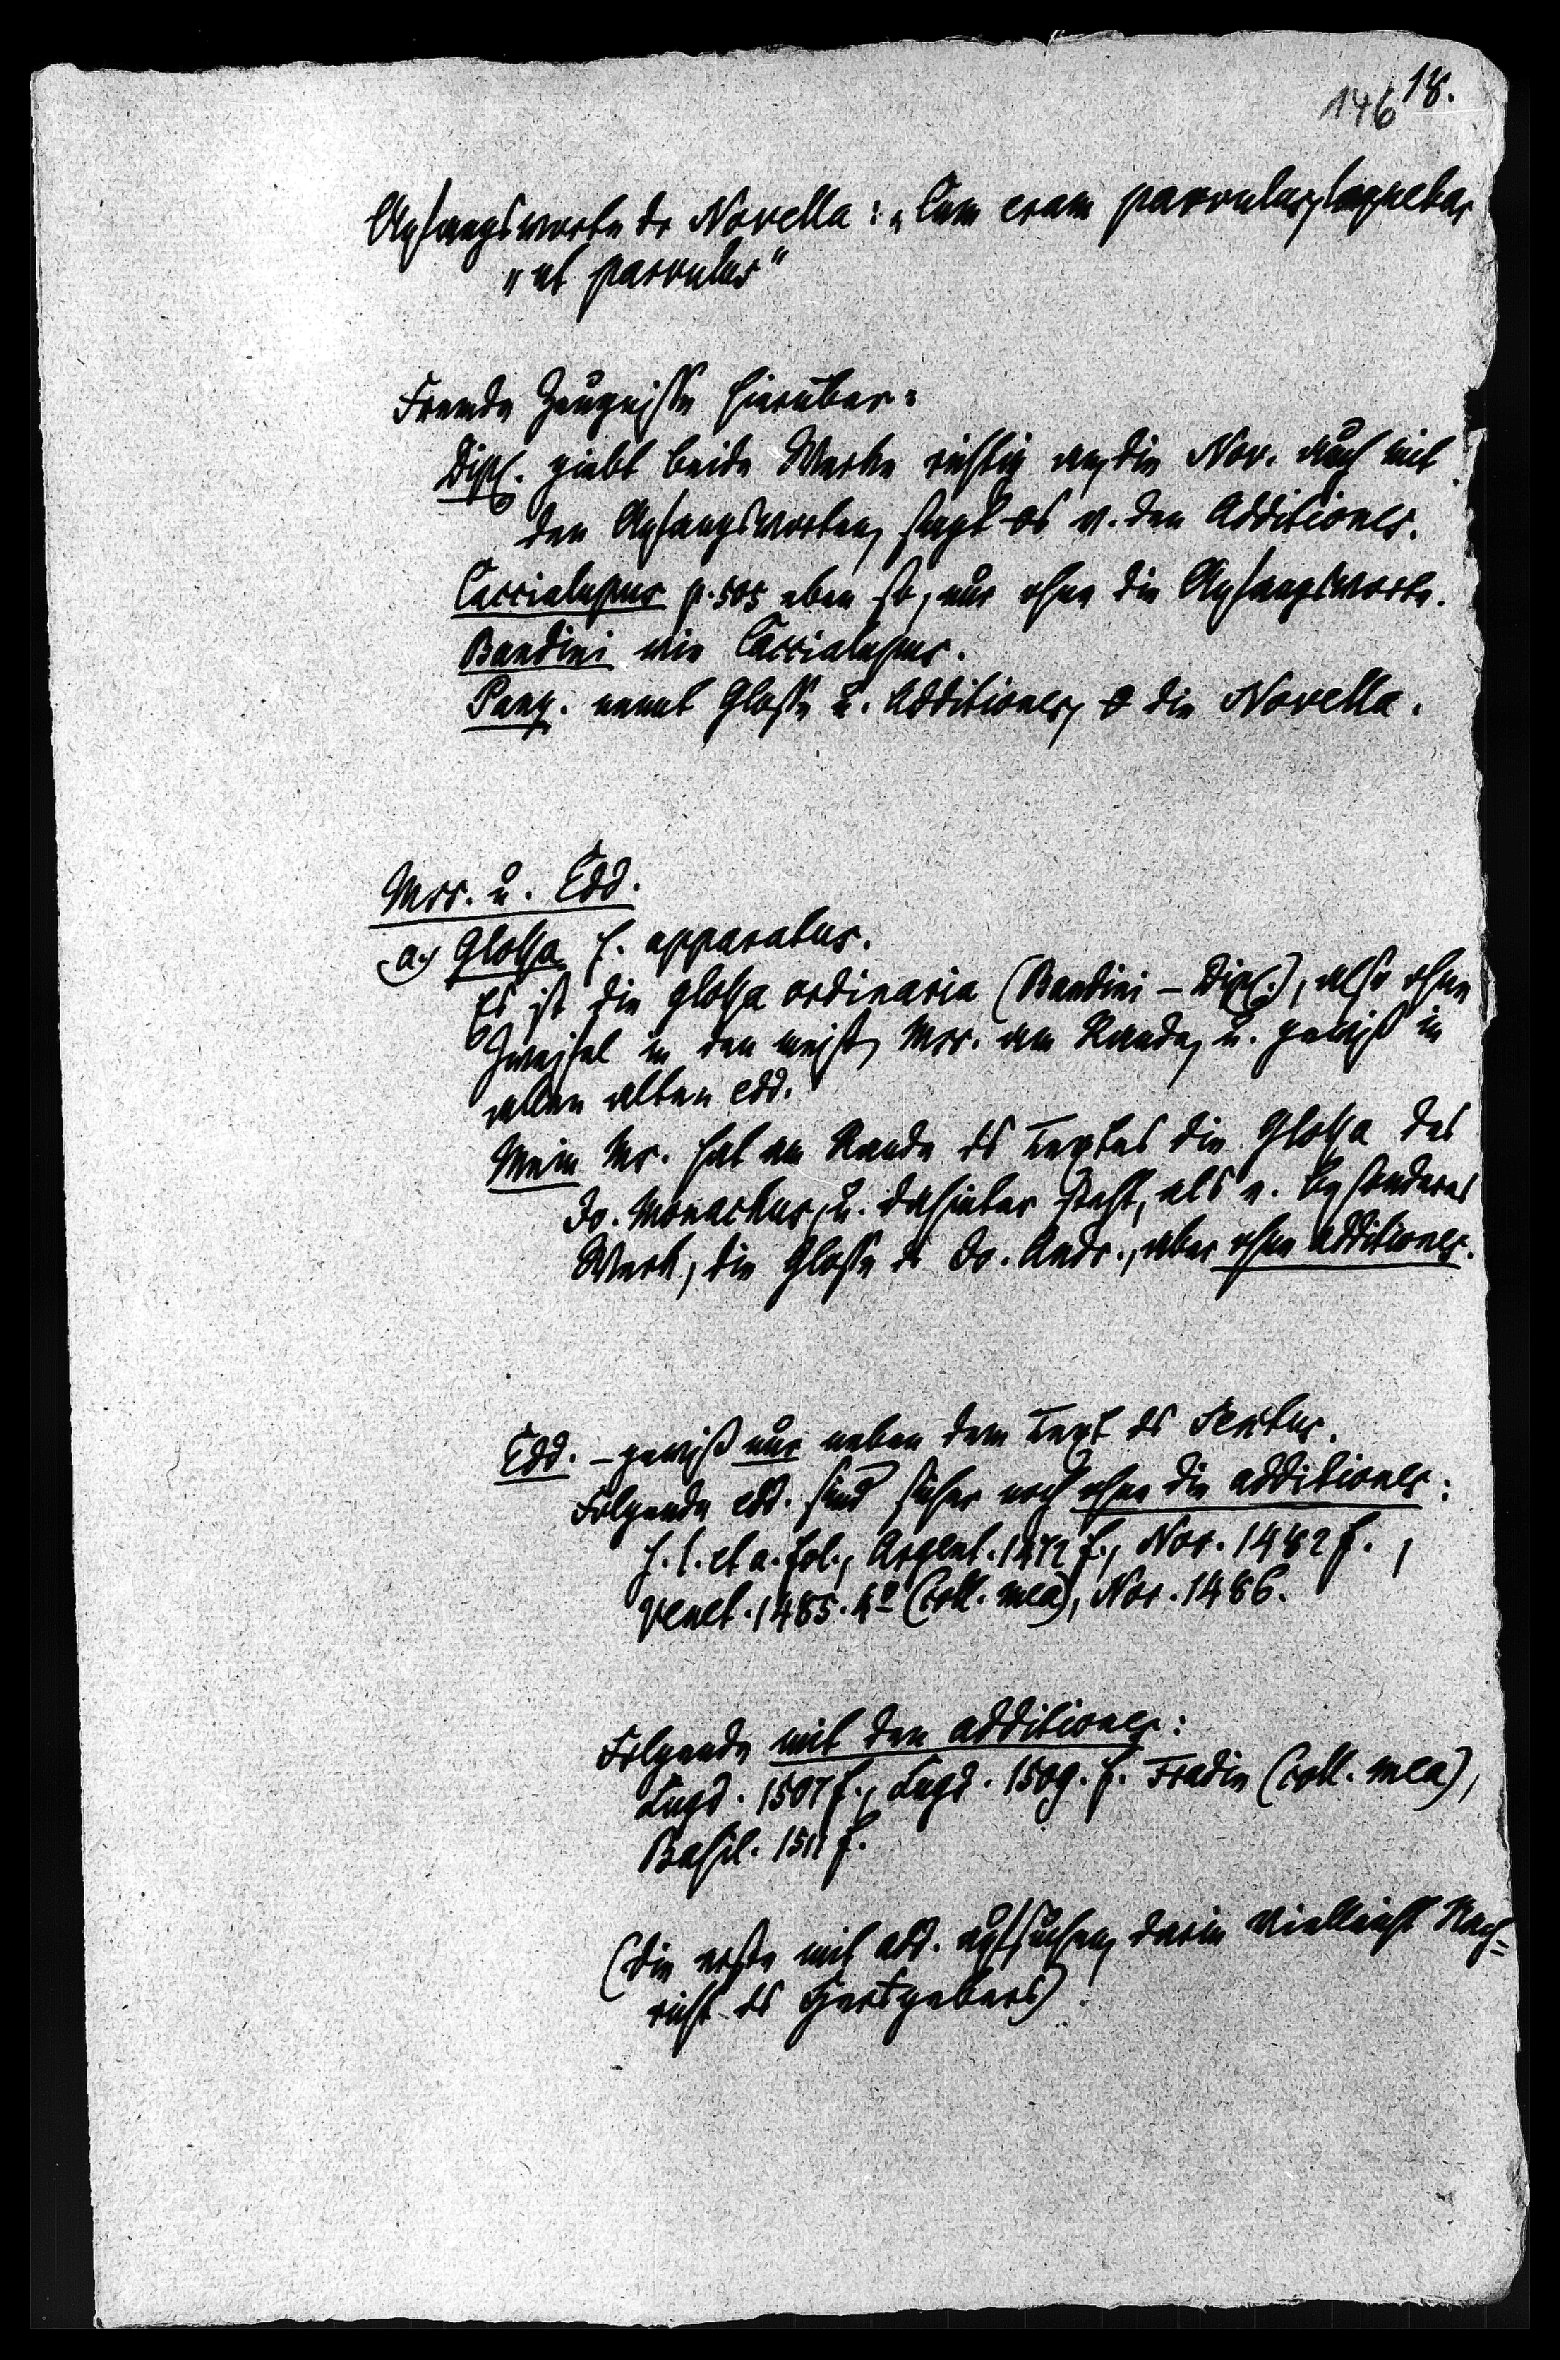 146 18.
Anfangsworte der Novella: „Cum eram parvulus, loquebar
„ut parvulus"
Fremde Zeugnisse hierüber:
Dipl. giebt beide Werke richtig an, die Nov. auch mit
den Anfangsworten, sagt es v. den Additiones.
Caccialupus p. 505 eben so, nur ohne die Anfangsworte.
Bandini wie Caccialupus.
Panz. nennt Glosse u. Additiones, die Novella.
Mss. u. Edd.
a.) Glossa s. apparatus.
Es ist die glossa ordinaria (Bandini – Dipl.), also ohne
Zweifel in den meist. Mss. am Rande, u. gewiß in
allen alten edd.
Mein Ms. hat am Rande des Textes die Glossa des
Jo. Monachus, u. dahinter steht, als e. besonderes
Werk, die Glosse des Jo. Andr., aber ohne additiones.
Edd. – gewiß nur neben dem Text des Sextus.
Folgende edd. sind sicher noch ohne die additiones:
s. l. et a. fol., Argent. 1472 f., Nor. 1482 f.,
Venet. 1485. 4º (coll. mea), Nor. 1486.
Folgende mit den additiones:
Lugd. 1507 f., Lugd. 1509. f. Fradin (coll. mea),
Basil. 1511 f.
(die erste mit add. aufsuchen, darin vielleicht Nach=
richt des Herausgebers)